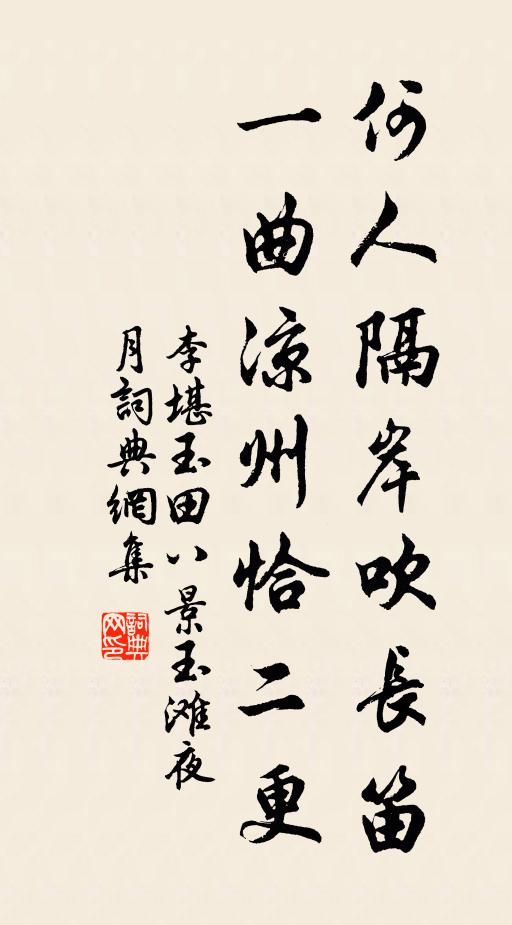 何人隔岸吹長笛
一曲凉州恰二更
李堪玉田八景玉滩夜
月詞典網集
詞典
网印